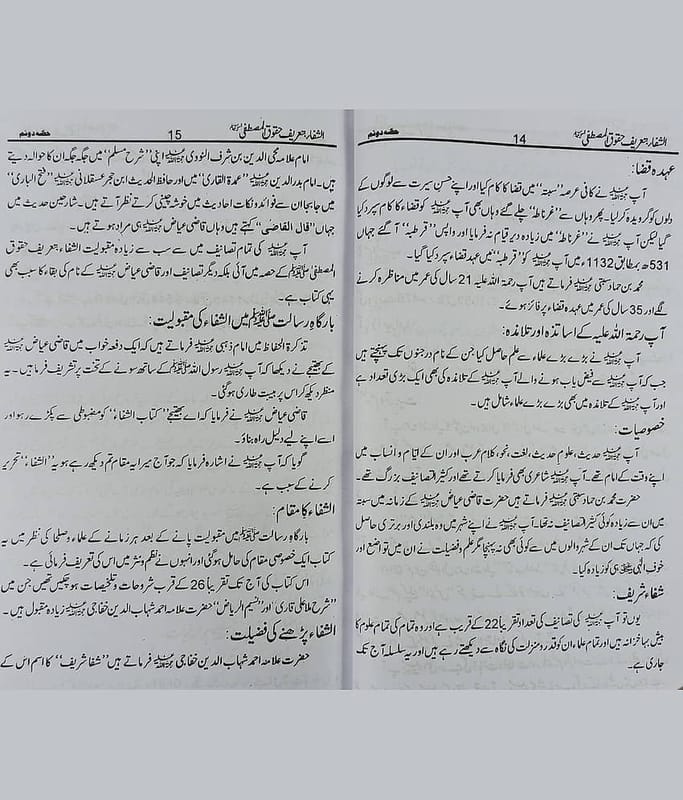 الشفاء بتعریف حقوق المصطفیٰ ﷺ 14 حصہ دوئم
عہدہ قضا:
آپ رحمۃ اللہ علیہ نے کافی عرصہ ’’سبتہ‘‘ میں قضا کا کام کیا اور اپنے حسنِ سیرت سے لوگوں کے
دلوں کو گرویدہ کرلیا۔ پھر وہاں سے ’’غرناطہ‘‘ چلے گئے وہاں بھی آپ رحمۃ اللہ علیہ کو قضا کا کام سپرد کیا
گیا لیکن آپ رحمۃ اللہ علیہ نے ’’غرناطہ‘‘ میں زیادہ دیر قیام نہ فرمایا اور واپس ’’قرطبہ‘‘ آگئے جہاں
531ھ بمطابق 1132ء میں آپ رحمۃ اللہ علیہ کو ’’قرطبہ‘‘ میں عہدہ قضاء سپرد کیا گیا۔
محمد بن حماد سبتی رحمۃ اللہ علیہ فرماتے ہیں آپ رحمۃ اللہ علیہ 21 سال کی عمر میں مناظرہ کرنے
لگے اور 35 سال کی عمر میں عہدہ قضاء پر فائز ہوئے۔
آپ رحمۃ اللہ علیہ کے اساتذہ اور تلامذہ:
آپ رحمۃ اللہ علیہ نے بڑے بڑے علماء سے علم حاصل کیا جن کے نام درجنوں تک پہنچتے ہیں
جب کہ آپ رحمۃ اللہ علیہ سے فیض یاب ہونے والے آپ رحمۃ اللہ علیہ کے تلامذہ کی بھی ایک بڑی تعداد ہے
اور آپ رحمۃ اللہ علیہ کے تلامذہ میں بھی بڑے بڑے علماء شامل ہیں۔
خصوصیات:
آپ رحمۃ اللہ علیہ حدیث، علومِ حدیث، لغت، نحو، کلامِ عرب اور ان کے ایام و انساب میں
اپنے وقت کے امام تھے۔ آپ رحمۃ اللہ علیہ شاعری بھی فرمایا کرتے تھے اور کثیر التصانیف بزرگ تھے۔
حضرت محمد بن حماد سبتی رحمۃ اللہ علیہ فرماتے ہیں حضرت قاضی عیاض رحمۃ اللہ علیہ کے زمانہ میں سبتہ
میں ان سے زیادہ کوئی کثیر التصانیف نہ تھا۔ آپ رحمۃ اللہ علیہ نے اپنے شہر میں وہ بلندی اور برتری حاصل
کی کہ جہاں تک ان کے شہر والوں میں سے کوئی بھی نہ پہنچا مگر علم و فضیلت نے ان میں تواضع اور
خوفِ الٰہی ہی کو زیادہ کیا۔
شفاء شریف:
یوں تو آپ رحمۃ اللہ علیہ کی تصانیف کی تعداد تقریباً 22 کے قریب ہے اور وہ تمام کی تمام علوم کا
بیش بہا خزانہ ہیں اور تمام علماء ان کو قدر و منزلت کی نگاہ سے دیکھتے رہے ہیں اور یہ سلسلہ آج تک
جاری ہے۔
الشفاء بتعریف حقوق المصطفیٰ ﷺ 15 حصہ دوئم
امام علامہ محی الدین بن شرف النووی رحمۃ اللہ علیہ اپنی ’’شرح مسلم‘‘ میں جگہ جگہ ان کا حوالہ دیتے
ہیں۔ امام بدرالدین رحمۃ اللہ علیہ ’’عمدۃ القاری‘‘ میں اور حافظ الحدیث ابن حجر عسقلانی رحمۃ اللہ علیہ ’’فتح الباری‘‘
میں جابجا ان سے فوائد و نکاتِ احادیث میں خوشہ چینی کرتے نظر آتے ہیں۔ شارحینِ حدیث میں
جہاں ’’قال القاضی‘‘ کہتے ہیں وہاں قاضی عیاض رحمۃ اللہ علیہ ہی مراد ہوتے ہیں۔
آپ رحمۃ اللہ علیہ کی تمام تصانیف میں سے سب سے زیادہ مقبولیت الشفاء بتعریف حقوق
المصطفیٰ ﷺ کے حصہ میں آئی بلکہ دیگر تصانیف اور قاضی عیاض رحمۃ اللہ علیہ کے نام کی بقاء کا سبب بھی
یہی کتاب ہے۔
بارگاہِ رسالت ﷺ میں الشفاء کی مقبولیت:
تذکرۃ الحفاظ میں امام ذہبی رحمۃ اللہ علیہ فرماتے ہیں کہ ایک دفعہ خواب میں قاضی عیاض رحمۃ اللہ علیہ
کے بھتیجے نے دیکھا کہ آپ رحمۃ اللہ علیہ رسول اللہ ﷺ کے ساتھ سونے کے تخت پر تشریف فرما ہیں۔ یہ
منظر دیکھ کر اس پر ہیبت طاری ہوگئی۔
قاضی عیاض رحمۃ اللہ علیہ نے فرمایا کہ اے بھتیجے ’’کتاب الشفاء‘‘ کو مضبوطی سے پکڑے رہو اور
اسے اپنے لیے دلیلِ راہ بناؤ۔
گویا کہ آپ رحمۃ اللہ علیہ نے اشارہ فرمایا کہ جو آج میرا یہ مقام تم دیکھ رہے ہو یہ ’’الشفاء‘‘ تحریر
کرنے کے سبب ہے۔
الشفاء کا مقام:
بارگاہِ رسالت ﷺ میں مقبولیت پانے کے بعد ہر زمانے کے علماء و صلحا کی نظر میں یہ
کتاب ایک خصوصی مقام کی حامل ہوگئی اور انہوں نے نظم و نثر میں اس کی تعریف فرمائی ہے۔
اس کتاب کی آج تک تقریباً 26 کے قریب شروحات و تلخیصات ہوچکیں تھیں جن میں
’’شرح ملا علی قاری‘‘ اور ’’نسیم الریاض‘‘ حضرت علامہ احمد شہاب الدین خفاجی رحمۃ اللہ علیہ زیادہ مقبول ہیں۔
الشفاء پڑھنے کی فضیلت:
حضرت علامہ احمد شہاب الدین خفاجی رحمۃ اللہ علیہ فرماتے ہیں ’’شفا شریف‘‘ کا اسم اس کے